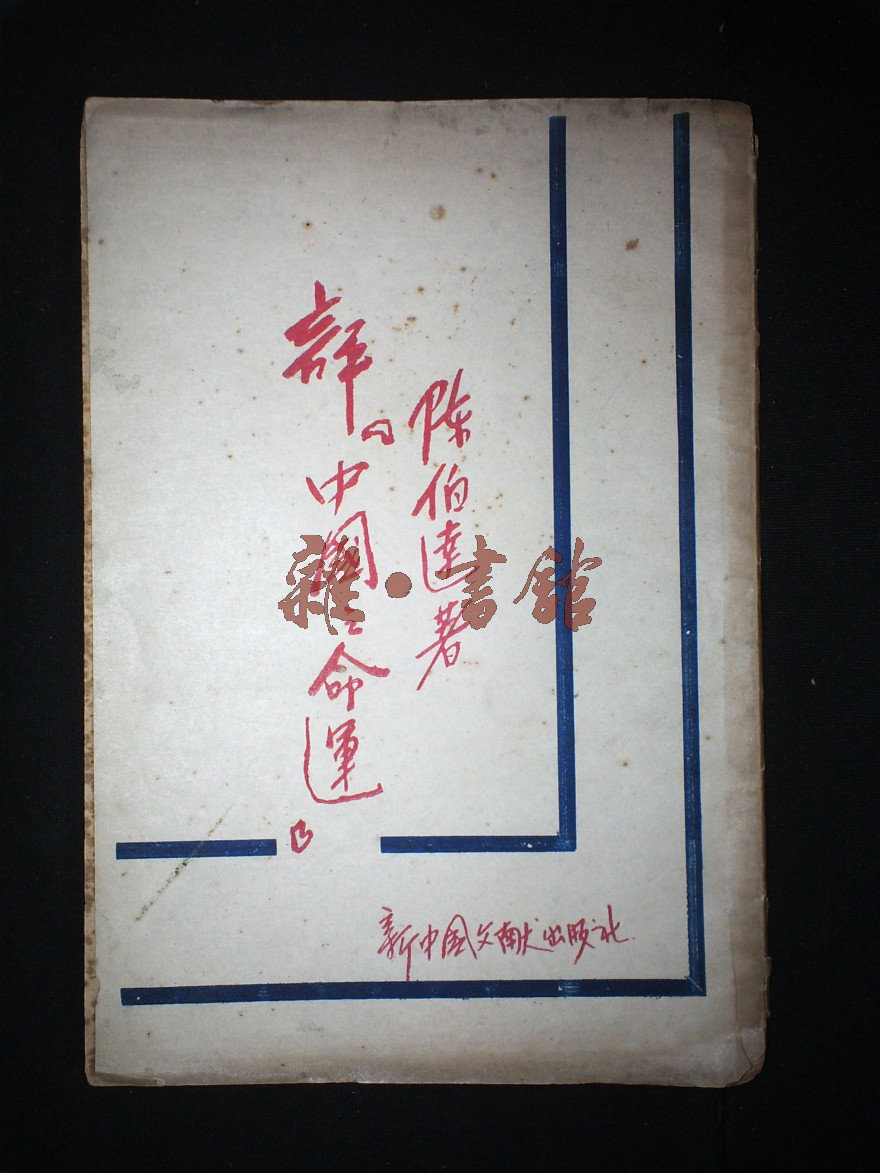 評『中國之命運』
陈伯達著
新中国文献出版社
雜·書館